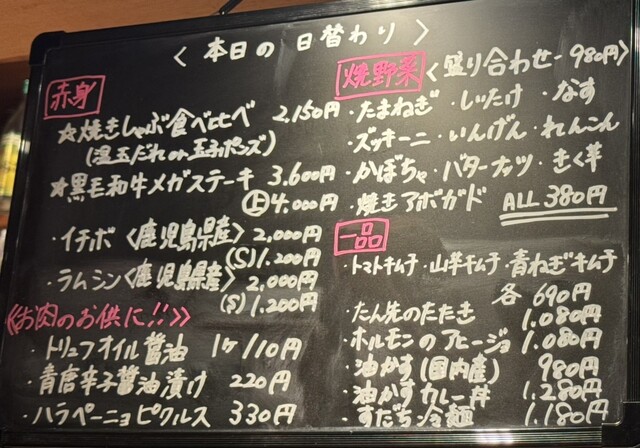 〈本日の日替わり〉
赤身
☆焼きしゃぶ食べ比べ 2,150円
(温玉だれor玉子ポンズ)
☆黒毛和牛メガステーキ 3,600円
上 4,000円
・イチボ〈鹿児島県産〉 2,000円
(S) 1,200円
・ラムシン〈鹿児島県産〉 2,000円
(S) 1,200円
《お肉のお供に!!》
・トリュフオイル醤油 1ケ 110円
・青唐辛子醤油漬け 220円
・ハラペーニョピクルス 330円
焼野菜〈盛り合わせ-980円〉
・たまねぎ ・しいたけ ・なす
・ズッキーニ ・いんげん ・れんこん
・かぼちゃ ・バターナッツ ・きく芋
・焼きアボガド ALL 380円
一品
・トマトキムチ ・山芋キムチ ・青ねぎキムチ
各 690円
・たん先のたたき 1,080円
・ホルモンのアヒージョ 1,080円
・油かす(国内産) 980円
・油かすカレー丼 1,280円
・すだち冷麺 1,180円